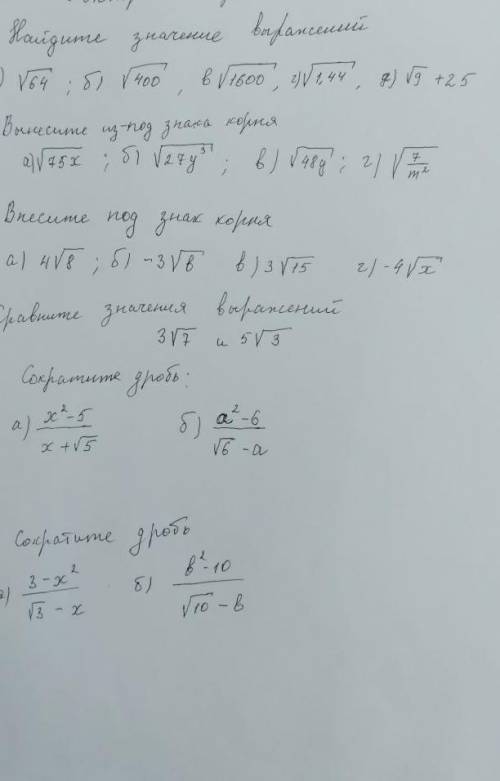 Найдите значение выражений
) √64 ; б) √400 , в √1600, г) √1,44, д) √9 + 25
Вынесите из-под знака корня
а) √75x ; б) √27y³ ; в) √48y ; г) √(7/m²)
Внесите под знак корня
а) 4√8 ; б) -3√b в) 3√15 г) -4√x
равните значения выражений
3√7 и 5√3
Сократите дробь:
а) (x²-5)/(x+√5) б) (a²-6)/(√6-a)
Сократите дробь
а) (3-x²)/(√3-x) б) (b²-10)/(√10-b)